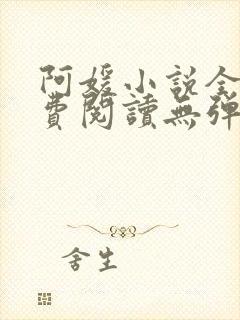 阿媛小說全
費閱讀無彈
舍生